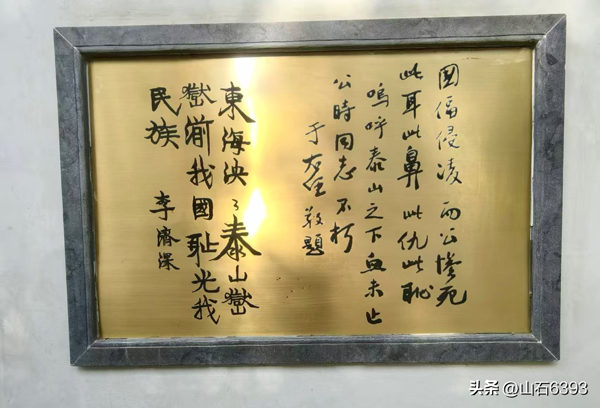 國偪侵凌而公慘死
此耳此鼻此仇此恥
嗚呼泰山之下血未止
公時同志不朽
于右任敬題
東海泱〻泰山嶽
嶽湔我國恥光我
民族
李濟深
头条 @山石6393